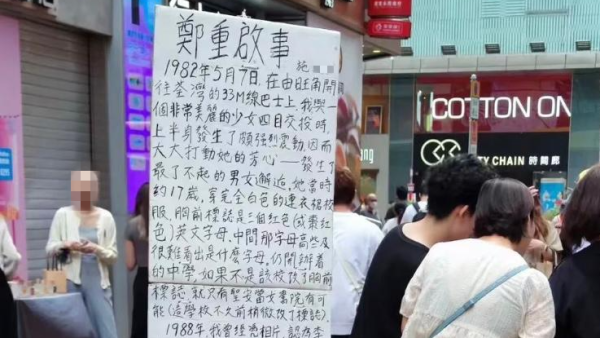 鄭重啟事
1982年5月7日,在由旺角開
往荃灣的33M線巴士上,我與一
個非常美麗的少女四目交投時,
上半身發生了頗強烈震動,因而
大大打動她的芳心——發生了
最了不起的男女邂逅,她當時
約17歲,穿完全白色的連衣裙校
服,胸前標誌是三個紅色(或棗紅
色)英文字母,中間那字母高些及
很難看出是什麼字母,仍開辦着
的中學,如果不是該校改了胸前
標誌,就只有聖安當女書院有可
能(這學校不久前稍微改了標誌).
1988年,我曾經
COTTON ON
CITY CHAIN 時間廊